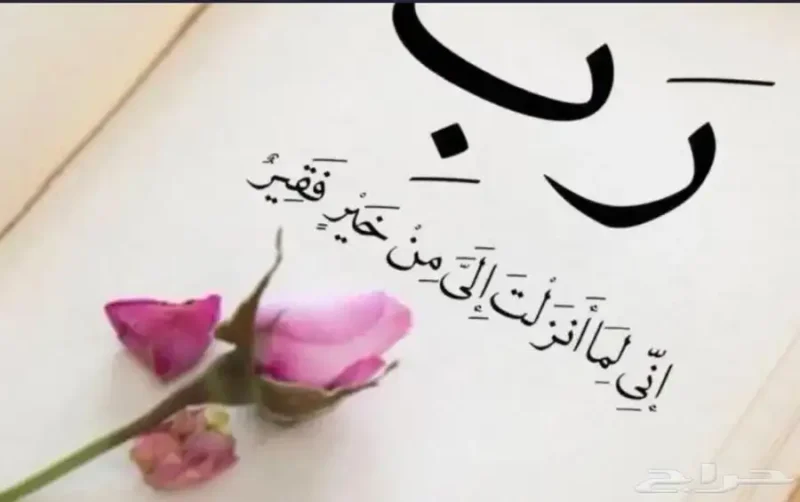 رَبِ
إِنِّي لِمَا أَنزَلْتَ إِلَيَّ مِنْ خَيْرٍ فَقِيرٌ
حراج